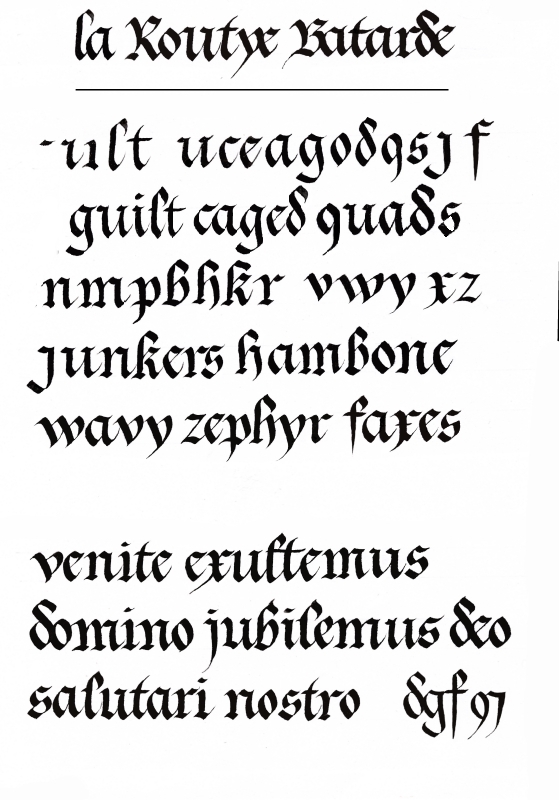 la Routye Batarde
-uılt uceagodqsj f
guilt caged quads
nmpbhkr vwy xz
junkers hambone
wavy zephyr faxes
venite exultemus
domino jubilemus deo
salutari nostro dgf 97